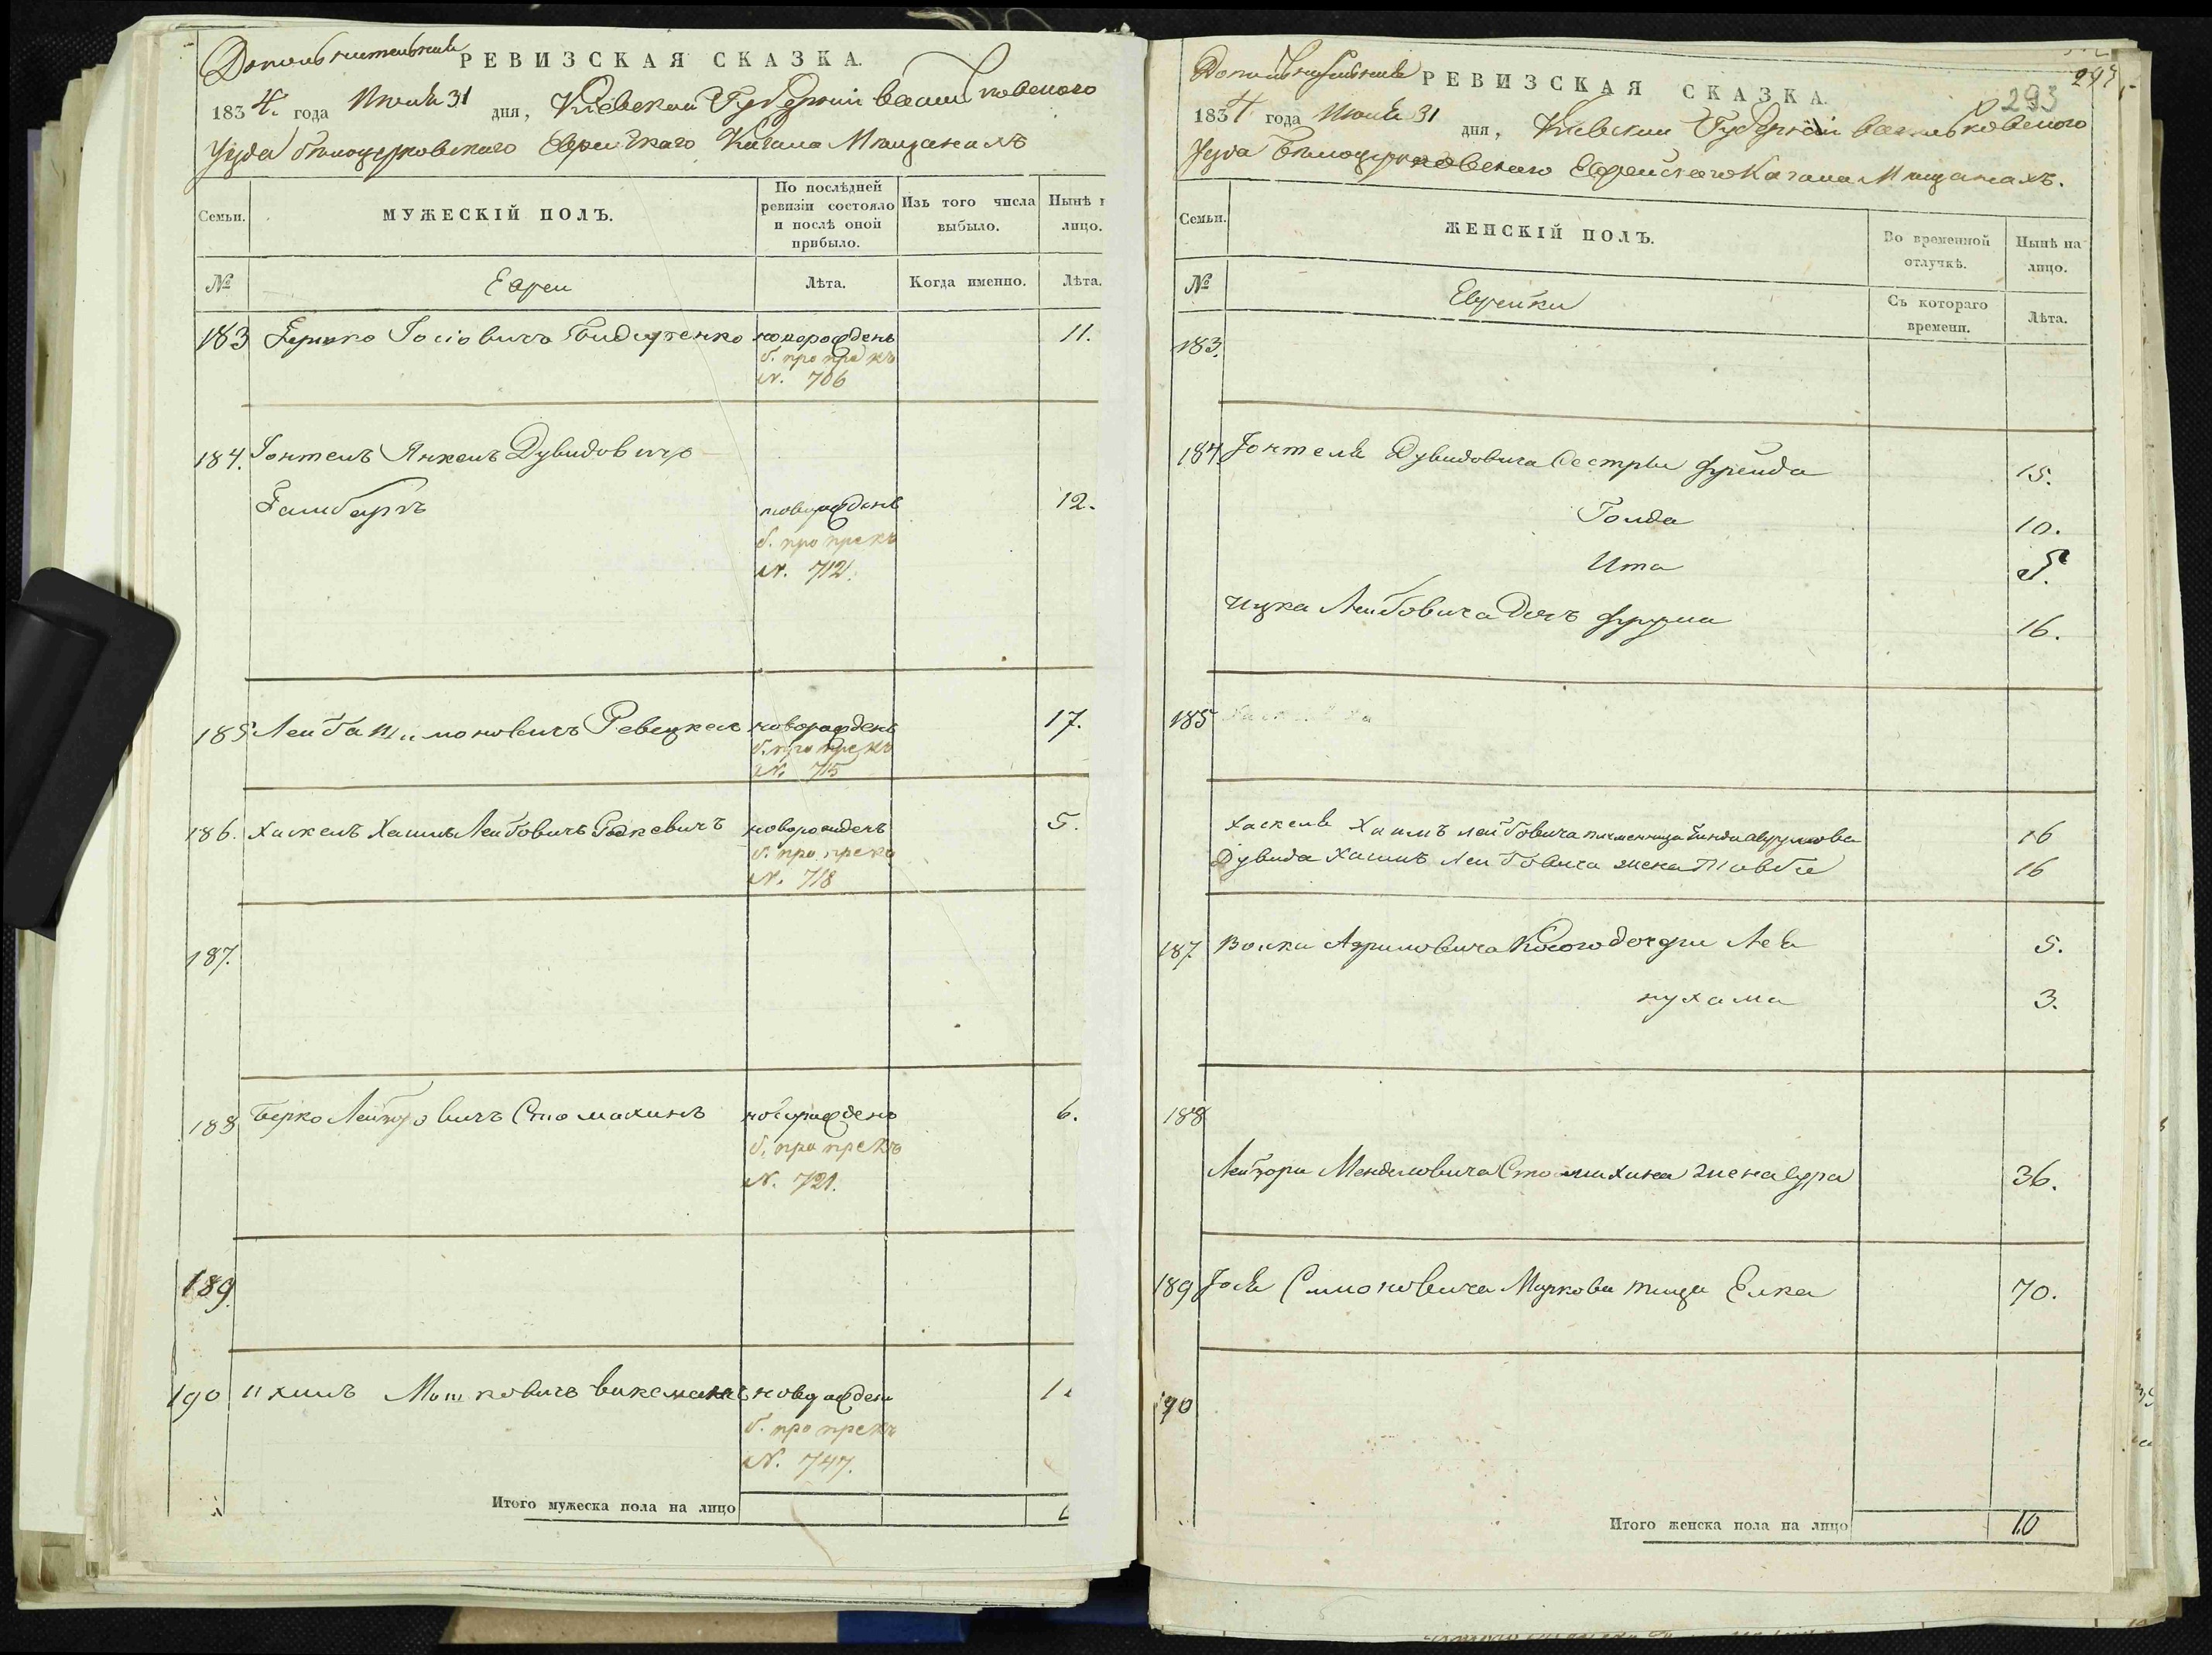 Дополнительная РЕВИЗСКАЯ СКАЗКА.
1834. года Июля 31 дня, Кіевской Губерніи Васильковского
Уезда Белоцерковского Еврейского Кагала Мещанамъ
Семьи. МУЖЕСКІЙ ПОЛЪ. По послѣдней ревизіи состояло и послѣ оной прибыло. Изъ того числа выбыло. Нынѣ
лицо.
№ Евреи Лѣта. Когда именно. Лѣта.
183 Гершко Іосіовичъ Бидиренко новорожденъ 11.
б. про прекъ
N. 706
184. Іонтель Янкель Дувидовичъ
Гамбергъ новорожденъ 12.
б. про прекъ
N. 712.
185 Лейба Шимоновичъ Ревецкая новорожденъ 17.
б. про прекъ
N. 715
186. Хаскель Хаимъ Лейбовичъ Радкевичъ новорожденъ 5.
б. про прекъ
N. 718
187.
188 Берко Лейзоровичъ Стомахинъ новорожденъ 6.
б. про прекъ
N. 721.
189.
190 Ихилъ Мошковичъ Виксманъ новорожден
б. про прекъ
N. 747.
Итого мужеска пола на лицо
Дополнительная РЕВИЗСКАЯ СКАЗКА.
293
1834 года Июля 31 дня, Кіевской Губерніи Васильковского
Уезда Белоцерковского Еврейского Кагала Мещанахъ.
Семьи. ЖЕНСКІЙ ПОЛЪ. Во временной отлучкѣ. Нынѣ на лицо.
№ Еврейки Съ котораго времени. Лѣта.
183.
184. Іонтеля Дувидовича Сестры Фрейда 15.
Голда 10.
Ита 5.
Ицка Лейбовича Дочъ Фрума 16.
185
Хаскеля Хаимъ Лейбовича племенница Гинда Аврумова 16
Дувида Хаимъ Лейбовича жена Товба 16
187. Волки Азримовича Косого дочери Лея 5.
нухама 3.
188
Лейзора Менделовича Стомахина жена Сура 36.
189 Іося Симоновича Маркова теща Елка 70.
190
Итого женска пола на лицо 10